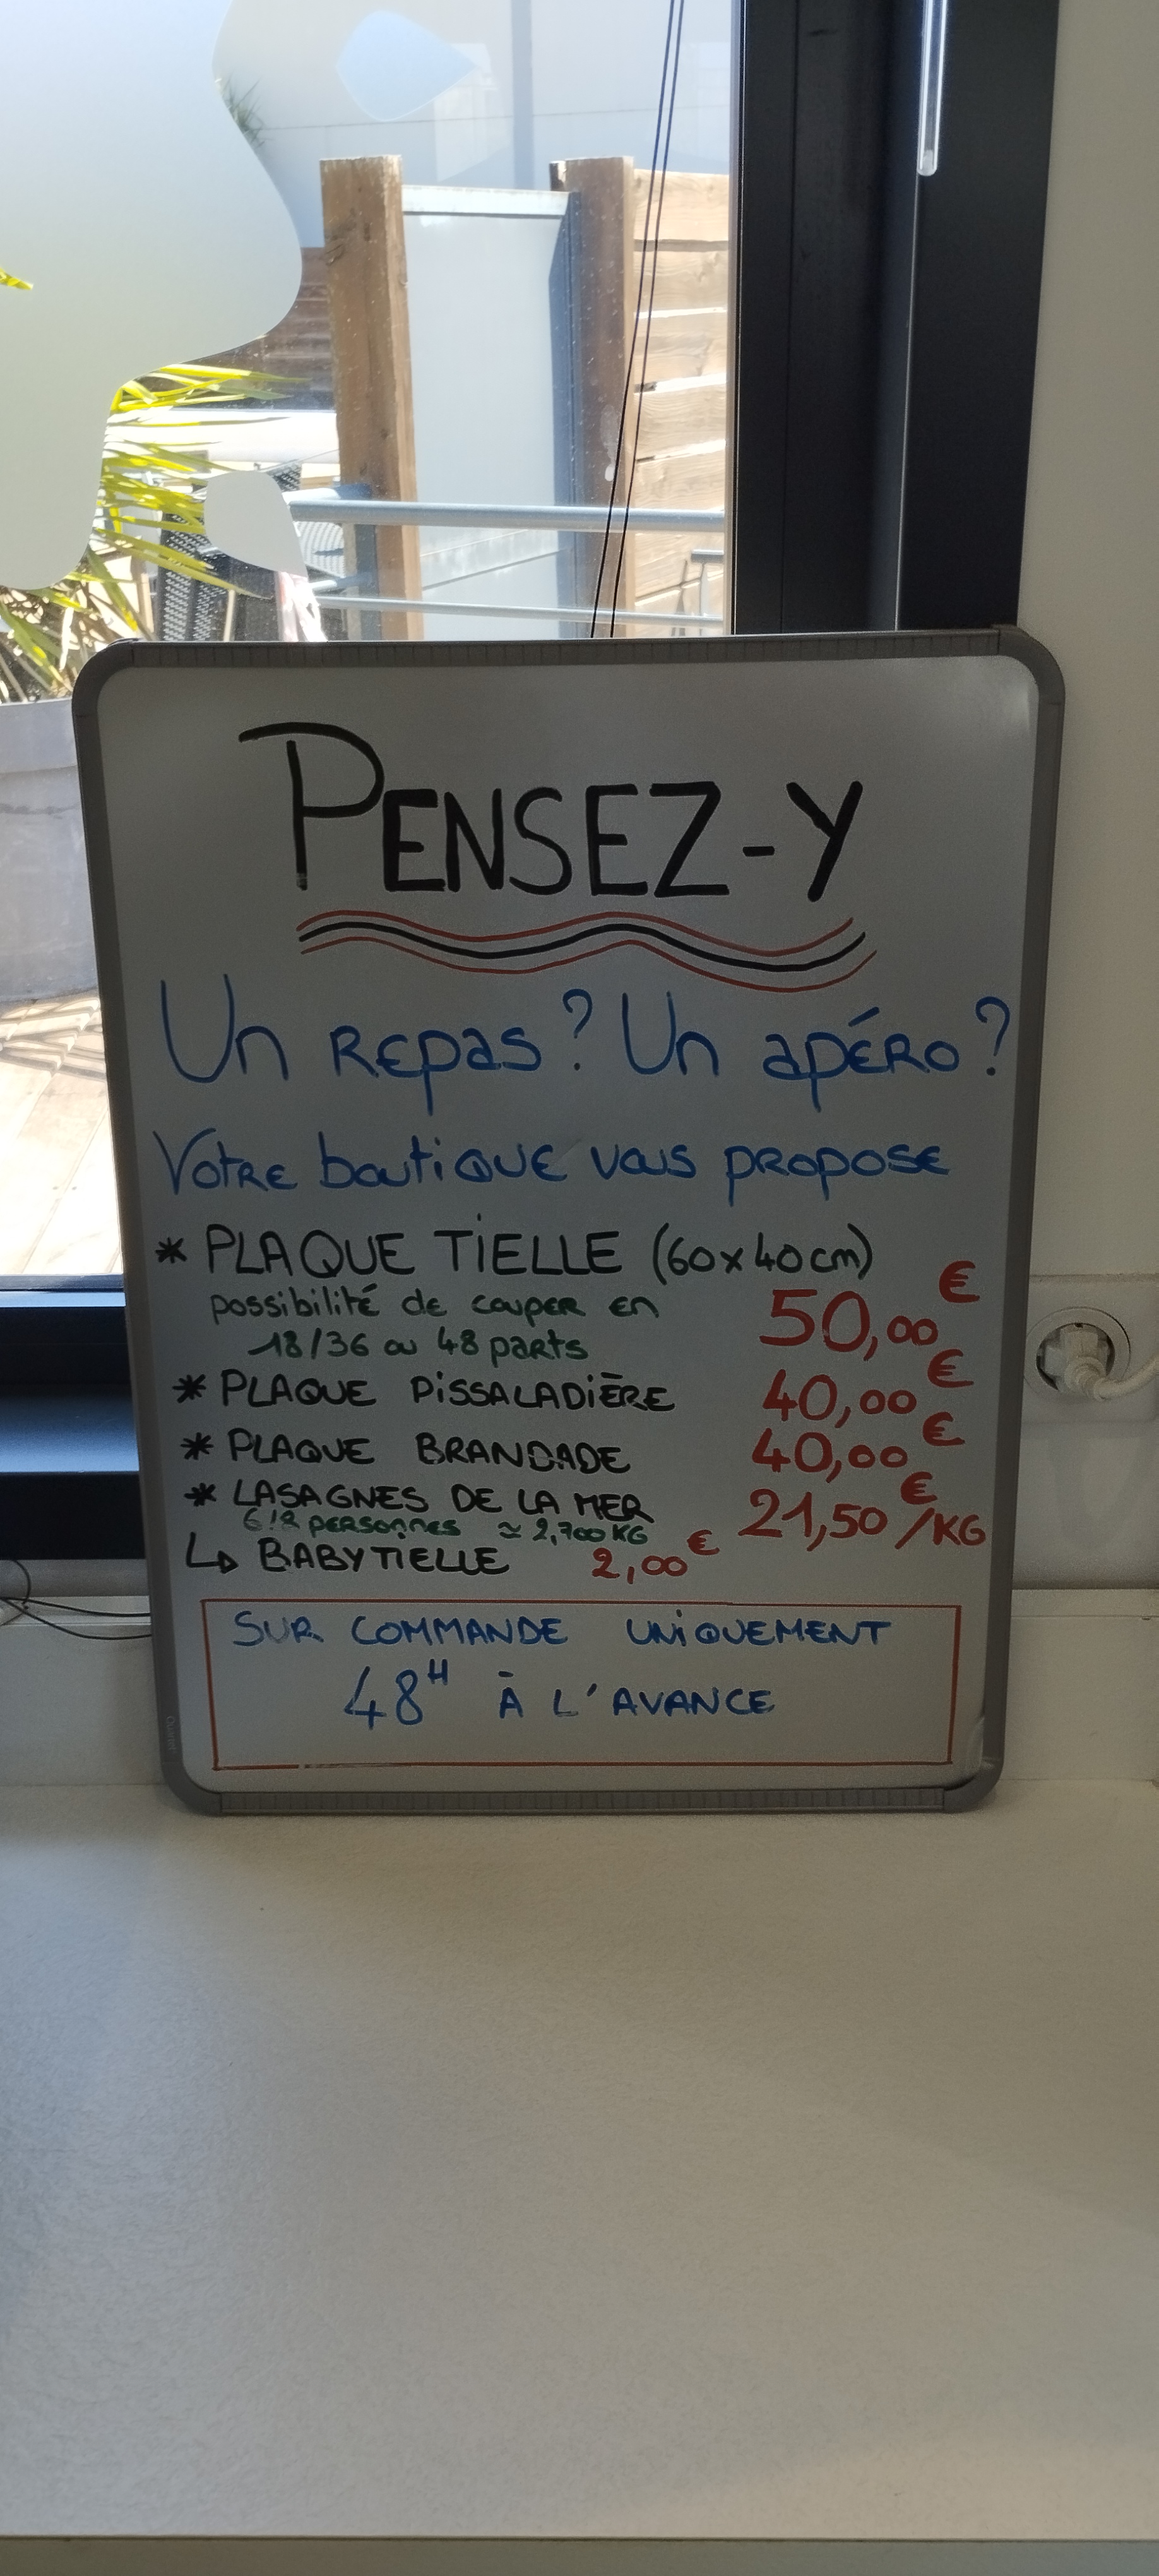 PENSEZ-Y
Un REPas ? Un apéRO ?
VOTRE boutiQUE vous PROPOSE
* PLAQUE TiELLE (60x40cm)
possibilité de couper en
18/36 ou 48 parts
50,00€
* PLAQUE PiSSALADIÈRE 40,00€
* PLAQUE BRANDADE 40,00€
* LASAGNES DE LA MER 21,50€/KG
PERSONNES ≃ 2,700 KG
↳ BABYTiELLE 2,00€
SUR COMMANDE UNiQUEMENT
48H À L'AVANCE